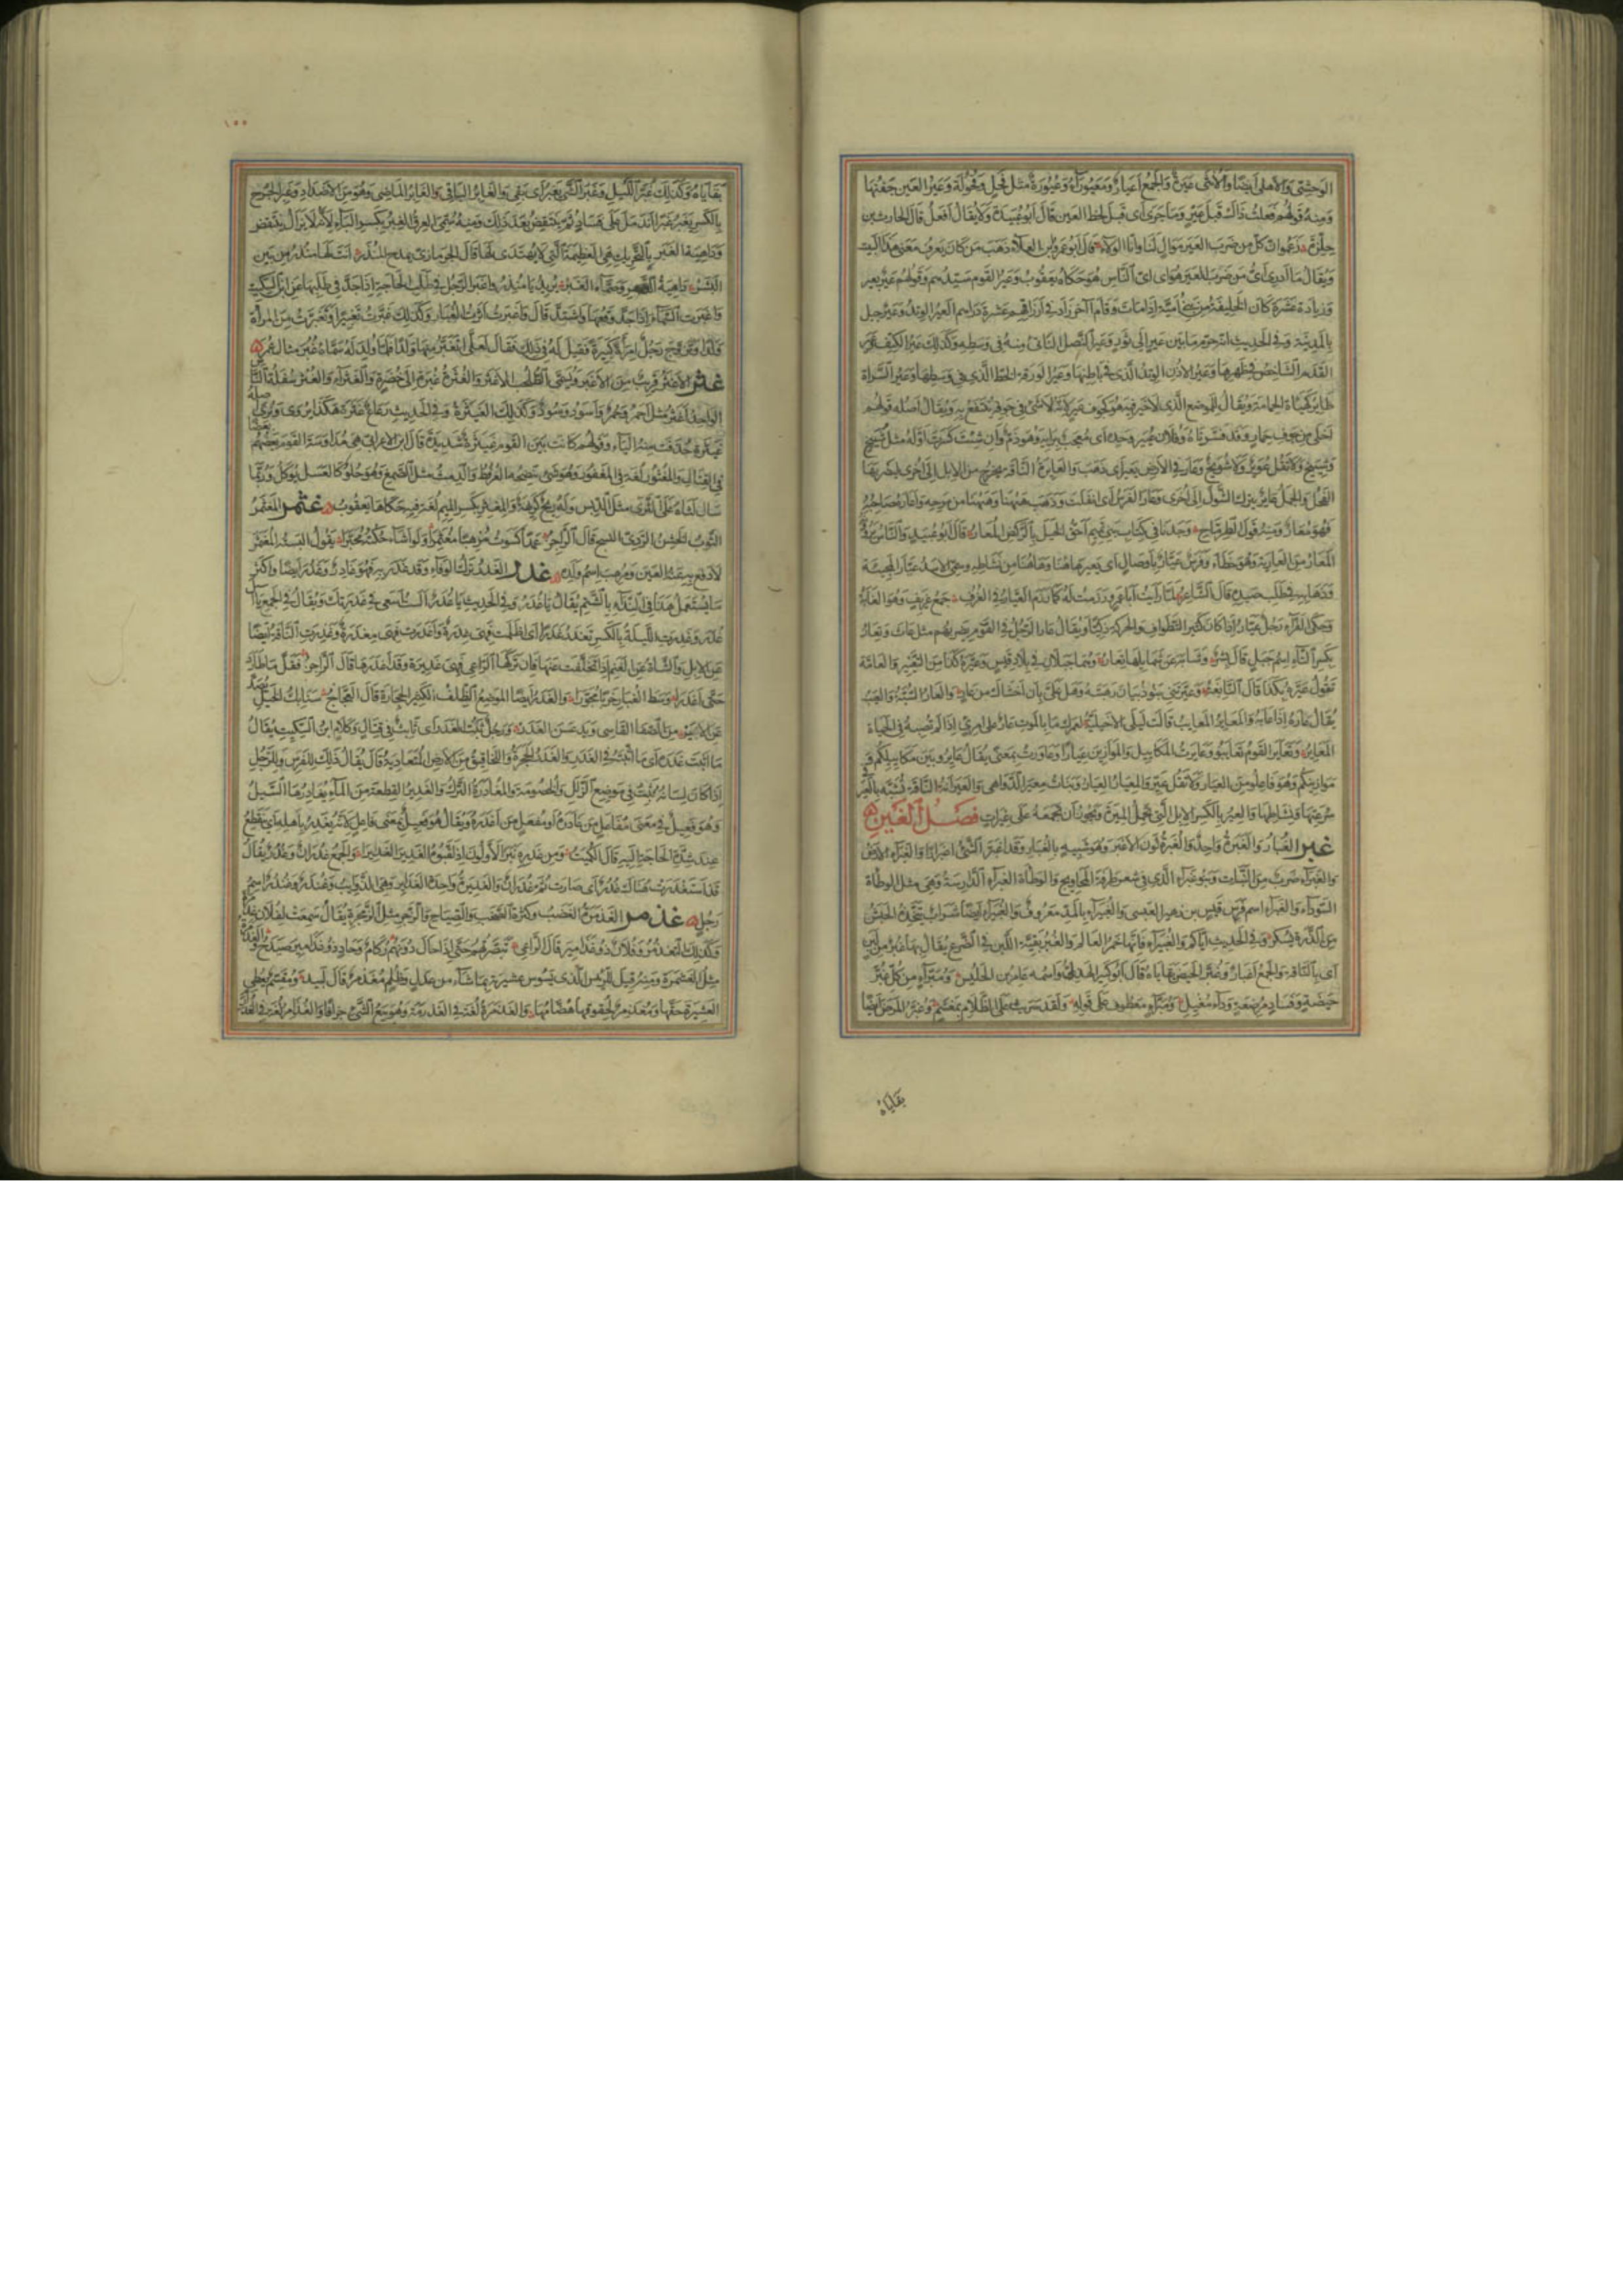 الوحشي والاهلي ايضا والانثى عيرة والجمع اعيار ومعيوراء وعيورة مثل فحل وفحولة وعير العين جفنها
ومنه قولهم فعلت ذاك قبل عير وما جرى اى قبل لحظ العين قال ابو عبيدة ولا يقال افعل قال الحارث بن
حلزة زعموا ان كل من ضرب العير موال لنا وانا الولاء قال ابو عمرو بن العلاء ذهب من كان يعرف معنى هذا البيت
ويقال ما ادرى اى من ضرب العير هو اى اى الناس هو حكاه يعقوب وعير القوم سيدهم وقولهم عير بعير
وزيادة عشرة كان الخليفة من بنى امية اذا مات وقام آخر زاد فى ارزاقهم عشرة دراهم العير الوتد وعير جبل
بالمدينة وفى الحديث انه حرم ما بين عير الى ثور وعير النصل الناتئ منه فى وسطه وكذلك عير الكتف وعير
القدم الشاخص فى ظهرها وعير الاذن الوتد الذى فى باطنها وعير الورقة الخط الذى فى وسطها وعير السراة
طاير كهيئة الحمامة ويقال للموضع الذى لا خير فيه هو كجوف عير لانه لا شئ فى جوفه ينتفع به ويقال اصله قولهم
اخلى من جوف حمار وقد فسرناه وفلان عيير وحده اى معجب برايه وهو ذم وان شئت كسرت اوله مثل شييخ
وشييخ ولا تقل عوير ولا شويخ وعار فى الارض يعير اى ذهب والعاير
الفحل والجمل عاير يترك الشول الى اخرى وعار الفرس اى انفلت وذهب ههنا وههنا من مرحه واعاره صاحبه
فهو معار ومنه قول الطرماح وجدنا فى كتاب بنى تميم احق الخيل بالركض المعار قال ابو عبيدة والناس يرونه
المعار من العارية وهو خطاء وفرس عيار باوصال اى يعير هاهنا وهاهنا من نشاطه وسمى الاسد عيارا لمجيئه
وذهابه فى طلب صيده قال الشاعر لما رايت ابا عمرو رزمت له كما رزم العيار فى الغرف جمع غريف وهو الغابة
وحكى الفراء رجل عيار اذا كان كثير التطواف والحركة ذكيا ويقال عار الرجل فى القوم يضربهم مثل عاث وتعار
بكسر التاء اسم جبل قال بشر وهما جبلان فى بلاد قيس وعيره كذا من التعيير والعامة
تقول عيره بكذا قال النابغة وعيرتنى بنو ذبيان رهبته وهل على بان اخشاك من عار والعار السبة والعيب
يقال عاره اذا عابه والمعاير المعايب قالت ليلى الاخيلية لعمرك ما بالموت عار على امرئ اذا لم تصبه فى الحياة
المعاير وتعاير القوم تعايبوا وعايرت المكاييل والموازين عيارا وعاورت بمعنى يقال عايروا بين مكاييلكم و
موازينكم وهو فاعلوا من العيار ولا تقل عيروا والمعيار العيار وبنات معير الدواهى والعيرانة الناقة تشبه بالعير فى
سرعتها ونشاطها والعير بالكسر الابل التى تحمل الميرة ويجوز ان تجمعه على عيرات فصل الغين
غبر الغبار والغبرة واحد والغبرة لون الاغبر وهو شبيه بالغبار وقد اغبر الشئ اغبرارا والغبراء الارض
والغبراء ضرب من النبات وبنو غبراء الذى فى شعر طرفة المحاويج والوطاة الغبراء الدارسة وهى مثل الوطاة
السوداء والغبراء اسم فرس قيس بن زهير العبسى والغبيراء بالمد معروف والغبيراء ايضا شراب تتخذه الحبش
من الذرة يسكر وفى الحديث اياكم والغبيراء فانها خمر العالم والغبر بقية اللبن فى الضرع يقال بها غبر من لبن
اى بالناقة والجمع اغبار وغبر الحيض بقاياه قال ابو كبير الهذلى واسمه عامر بن الحليس ومبراء من كل غبر
حيضة وفساد مرضعة وداء مغيل ومبراء معطوف على قوله ولقد سريت على الظلام بمغشم وغبر المرض ايضا
بقاياه
١٥٥
بقاياه وكذلك غبر الليل وغبر الشئ يغبر اى بقى والغابر الباقى والغابر الماضى وهو من الاضداد وغبر الجرح
بالكسر يغبر غبرا اندمل على فساد ثم ينتقض بعد ذلك ومنه سمى العرق الغبر بكسر الباء لانه لا يزال ينتقض
وداهية الغبر بالتحريك هى العظيمة التى لا يهتدى لها قال الحرمازى يمدح المنذر انت لها منذر من بين
البشر داهية الدهر وصماء الغبر يريد يا منذر واغبر الرجل فى طلب الحاجة اذا جد فى طلبها عن ابن السكيت
واغبرت السماء اذا جد وقعها واشتد قال واغبرت اثرت الغبار وكذلك غبرت تغبيرا وتغبرت من المراة
ولدا وتزوج رجل امراة كبيرة فقيل له فى ذلك فقال لعلى اتغبر منها ولدا فلما ولد له سماه غبر مثال عمر
غثر الاغثر قريب من الاغبر ويسمى الطحلب الاغثر والغثرة غبرة الى خضرة والغثراء والغثر سفلة الناس
الواحد اغثر مثل احمر وحمر واسود وسود وكذلك الغيثرة وفى الحديث رعاع غثرة هكذا يروى ونرى اصله
غيثرة حذفت منه الياء وقولهم كانت بين القوم غيثرة شديدة قال ابن الاعرابى هى مداوسة القوم بعضهم بعضا
فى القتال والمغثور لغة فى المغفور وهو شئ ينضجه العرفط والرمث مثل الصمغ وهو حلو كالعسل يوكل وربما
سال لثاه على الثرى مثل الدبس وله ريح كريهة والمغثر بكسر الميم لغة فيه حكاها يعقوب غثمر المغثمر
الثوب الخشن الردئ النسج قال الراجز عمدا كسوت مرهبا مغثمرا ولو اشاء حكته محبرا يقول البسته المغثمر
لادفع به عنه العين ومرهب اسم ولده غدر الغدر ترك الوفاء وقد غدر به فهو غادر وغدر ايضا واكثر
ما يستعمل هذا فى النداء بالشتم يقال يا غدر وفى الحديث يا غدر الست اسعى فى غدرتك ويقال فى الجمع يال
غدر وغدرت الليلة بالكسر تغدر غدرا اى اظلمت فهى غدرة واغدرت فهى مغدرة وغدرت الناقة ايضا
عن الابل والشاة عن الغنم اذا تخلفت عنها فان تركها الراعى فهى غديرة وقد اغدرها قال الراجز فقل ما طارد
حتى اغدرا وسط الغبار خربا مجورا والغدر ايضا الموضع الظلف الكثير الحجارة قال العجاج سنابك الخيل يصدعن
الاير من الصفا القاسى ويدعسن الغدر ورجل ثبت الغدر اى ثابت فى قتال وكلام ابن السكيت يقال
ما اثبت غدره اى ما اثبته فى الغدر والغدر الجحرة واللخاقيق من الارض المتعادية قال يقال ذلك للفرس وللرجل
اذا كان لسانه يثبت فى موضع الزلل والخصومة والمغادرة الترك والغدير القطعة من الماء يغادرها السيل
وهو فعيل فى معنى مفاعل من غادره او مفعل من اغدره ويقال هو فعيل بمعنى فاعل لانه يغدر باهله اى ينقطع
عند شدة الحاجة اليه قال الكميت ومن غدره نبز الاولون اذ لقبوه الغدير الغديرا والجمع غدران وغدر يقال
قد استغدرت هناك غدر اى صارت ثم غدران والغديرة واحدة الغداير وهى الذوايب وغندر وغندر اسم
رجل غذمر الغذمرة الغضب وكثرة الصخب والصياح والزجر مثل الزمجرة يقال سمعت لفلان غذمرة
وكذلك التغذمر وفلان ذو غذامير قال الراعى تبصرتهم حتى اذا حال دونهم ركام وحاد ذو غذامير صيدح والغذمرة
مثل الغشمرة ومنه قيل للرئيس الذى يسوس عشيرته بما شاء من عدل وظلم مغذمر قال لبيد ومقسم يعطى
العشيرة حقها ومغذمر لحقوقها هضامها والغذمرة لغة فى الغذرمة وهو بيع الشئ جزافا والغذامر لغة فى الغذارم